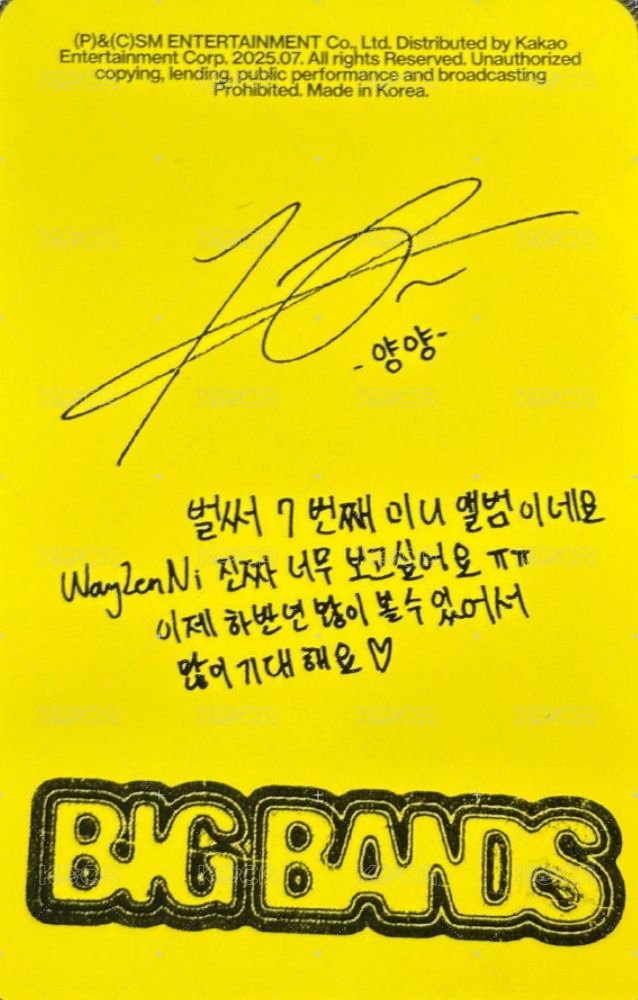 (P)&(C)SM ENTERTAINMENT Co., Ltd. Distributed by Kakao
Entertainment Corp. 2025.07. All rights Reserved. Unauthorized
copying, lending, public performance and broadcasting
Prohibited. Made in Korea.
-양양-
벌써 7 번째 미니 앨범이네요
WayZenNi 진짜 너무 보고싶어요 ㅠㅠ
이제 하반년 많이 볼수 있어서
많이 기대해요♡
BIG BANDS